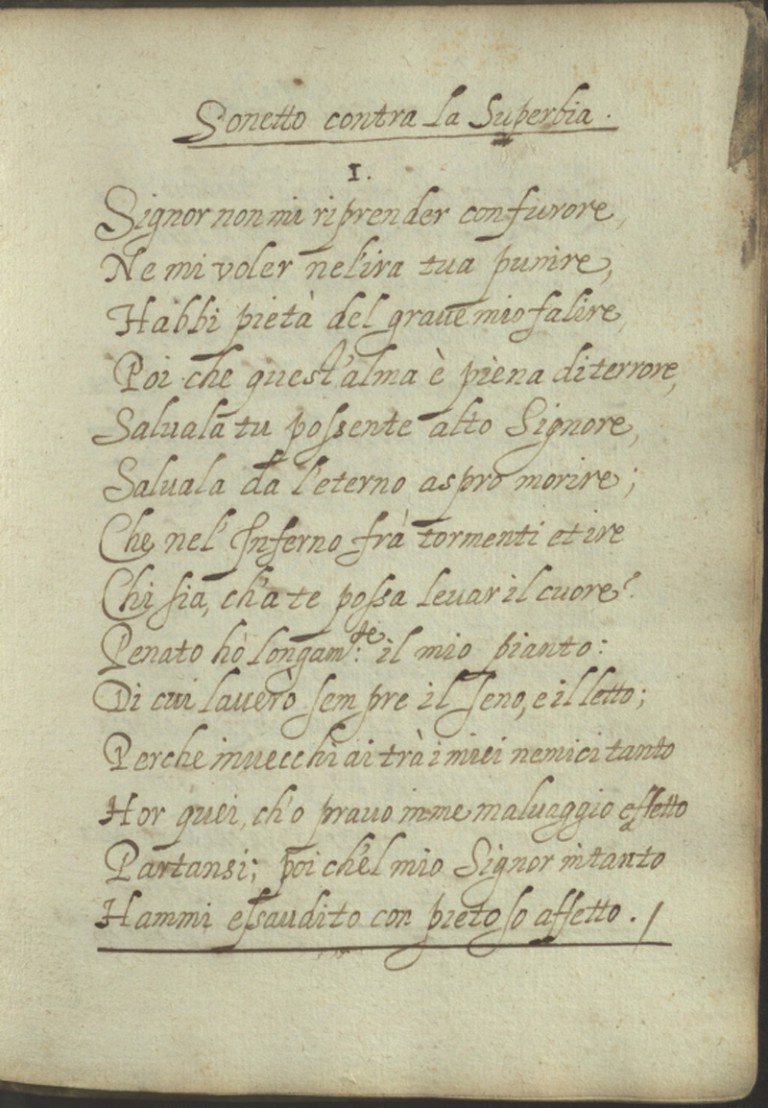 Sonetto contra la Superbia.
1.
Signor non mi riprender con furore,
Ne mi voler nel'ira tua punire,
Habbi pietà del graue mio falire,
Poi che quest'alma è piena di terrore,
Saluala tu possente alto Signore,
Saluala da l'eterno aspro morire;
Che nel' Inferno frà tormenti et ire
Chi sia, ch'a te possa leuar il cuore?
Penato hò longam:te il mio pianto:
Di cui lauerò sempre il seno, e il letto;
Perche inuecchiai trà i miei nemici tanto
Hor quei, ch'o prauo in me maluaggio effetto
Partansi; poi ch'el mio Signor intanto
Hammi essaudito con pietoso affetto./